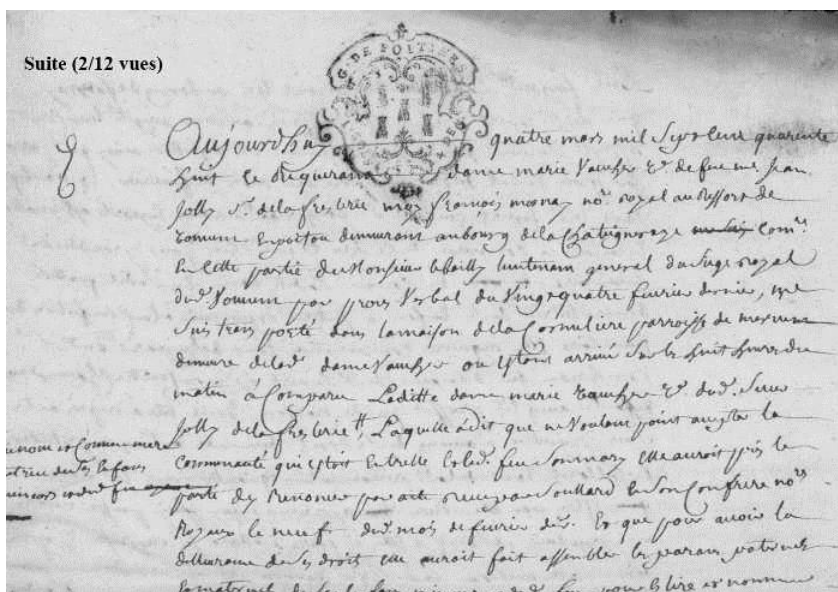 Suite (2/12 vues)
G. DE POITIERS
Aujourdhuy quatre mars mil sept cent quarente
huit Ce Requerant dame marie Vaucher Ve. de feu me. Jean
Jolly sr. de la fresterie nous françois monay nore. royal au Ressort de
Vouuent En poitou demeurant au bourg de la Chateigneraye Comre.
En Cette partie de Monsieur le Bailly lieutenant general du siege royal
dud. Vouuent par proces Verbal du Vingt quatre feurier dernier, me
suis transporté dans la maison de la Cornuliere parroisse de
demeure de lad. dame ou Estant arriué sur les huit heures du
matin à Comparu Laditte dame marie Ve. dud. sieur
Jolly de la fresterie, Laquelle a dit que ne Voulant point accepter la
Communauté qui Estoit Entrelle et led. feu son mary elle auroit pris le
party dy Renoncer par acte receu et son Confrere nores.
Royaux le neuf dud. mois de feurier der. Et que pour auoir la
deliurance de ses droits elle auroit fait assembler les parans paternels
Et maternels de pour Elire et nommer
en nom et Comme mere
et tutrice de ses Enfans
mineurs et dud. feu